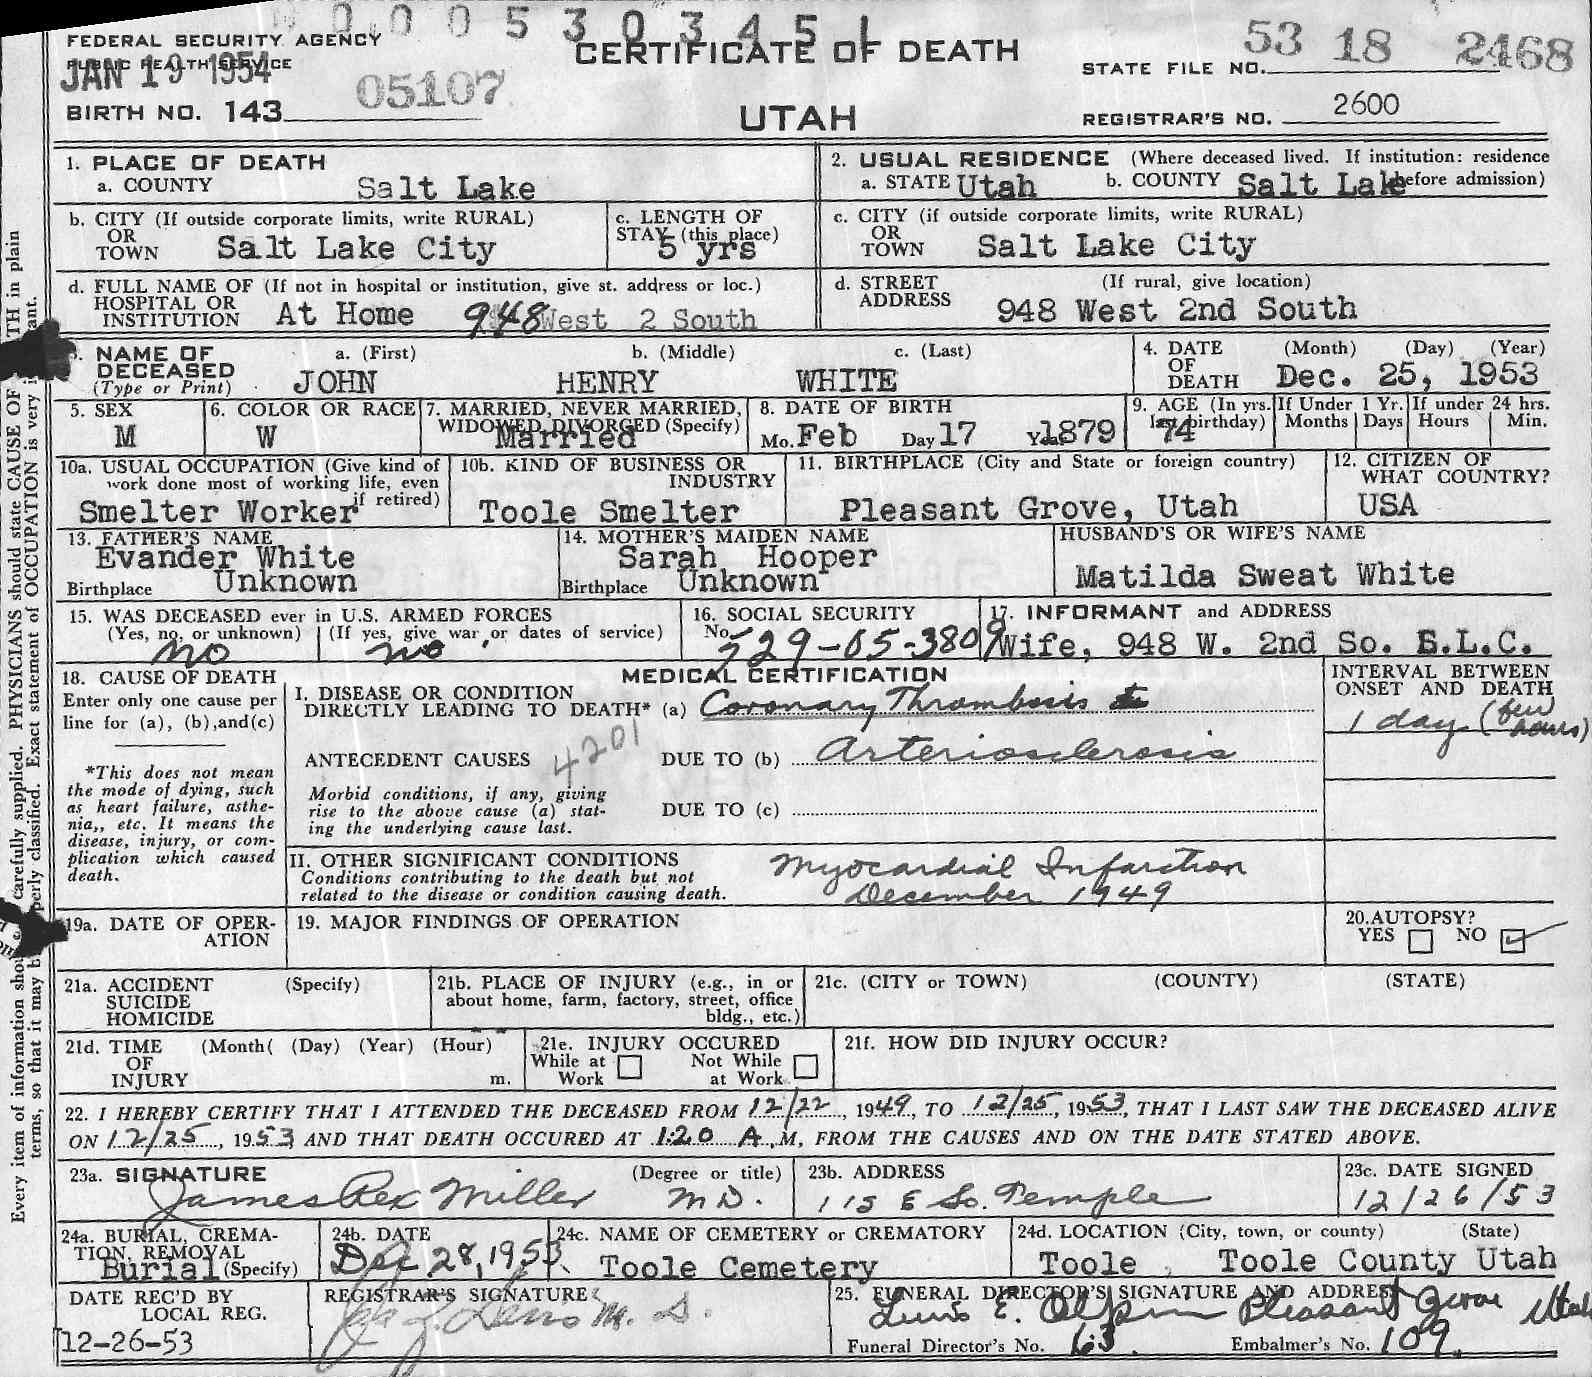 000530345 1
FEDERAL SECURITY AGENCY
PUBLIC HEALTH SERVICE
JAN 19 1954
05107
BIRTH NO. 143
CERTIFICATE OF DEATH
UTAH
53 18 2468
STATE FILE NO.
REGISTRAR'S NO. 2600
1. PLACE OF DEATH
a. COUNTY Salt Lake
2. USUAL RESIDENCE (Where deceased lived. If institution: residence
a. STATE Utah b. COUNTY Salt Lake before admission)
b. CITY (If outside corporate limits, write RURAL)
OR
TOWN Salt Lake City
c. LENGTH OF
STAY (this place)
5 yrs
c. CITY (if outside corporate limits, write RURAL)
OR
TOWN Salt Lake City
d. FULL NAME OF (If not in hospital or institution, give st. address or loc.)
HOSPITAL OR
INSTITUTION At Home 948 West 2 South
d. STREET (If rural, give location)
ADDRESS 948 West 2nd South
NAME OF a. (First) b. (Middle) c. (Last)
DECEASED
(Type or Print) JOHN HENRY WHITE
4. DATE (Month) (Day) (Year)
OF
DEATH Dec. 25, 1953
5. SEX
M
6. COLOR OR RACE
W
7. MARRIED, NEVER MARRIED,
WIDOWED, DIVORGED (Specify)
Married
8. DATE OF BIRTH
Mo. Feb Day 17 Year 1879
9. AGE (In yrs. If Under 1 Yr. If under 24 hrs.
last birthday) Months Days Hours Min.
74
10a. USUAL OCCUPATION (Give kind of
work done most of working life, even
if retired)
Smelter Worker
10b. KIND OF BUSINESS OR
INDUSTRY
Toole Smelter
11. BIRTHPLACE (City and State or foreign country)
Pleasant Grove, Utah
12. CITIZEN OF
WHAT COUNTRY?
USA
13. FATHER'S NAME
Evander White
Birthplace Unknown
14. MOTHER'S MAIDEN NAME
Sarah Hooper
Birthplace Unknown
HUSBAND'S OR WIFE'S NAME
Matilda Sweat White
15. WAS DECEASED ever in U.S. ARMED FORCES
(Yes, no, or unknown) (If yes, give war or dates of service)
no no
16. SOCIAL SECURITY
No. 529-05-3809
17. INFORMANT and ADDRESS
Wife, 948 W. 2nd So. S.L.C.
18. CAUSE OF DEATH
Enter only one cause per
line for (a), (b),and(c)
*This does not mean
the mode of dying, such
as heart failure, asthe-
nia,, etc. It means the
disease, injury, or com-
plication which caused
death.
MEDICAL CERTIFICATION
I. DISEASE OR CONDITION
DIRECTLY LEADING TO DEATH* (a) Coronary Thrombosis
ANTECEDENT CAUSES 4201 DUE TO (b) Arteriosclerosis
Morbid conditions, if any, giving
rise to the above cause (a) stat-
ing the underlying cause last.
DUE TO (c)
INTERVAL BETWEEN
ONSET AND DEATH
1 day (few
hours)
II. OTHER SIGNIFICANT CONDITIONS
Conditions contributing to the death but not
related to the disease or condition causing death.
Myocardial Infarction
December 1949
19a. DATE OF OPER-
ATION
19. MAJOR FINDINGS OF OPERATION
20. AUTOPSY?
YES NO ✓
21a. ACCIDENT (Specify)
SUICIDE
HOMICIDE
21b. PLACE OF INJURY (e.g., in or
about home, farm, factory, street, office
bldg., etc.)
21c. (CITY or TOWN) (COUNTY) (STATE)
21d. TIME (Month( (Day) (Year) (Hour)
OF
INJURY m.
21e. INJURY OCCURED
While at Not While
Work at Work
21f. HOW DID INJURY OCCUR?
22. I HEREBY CERTIFY THAT I ATTENDED THE DECEASED FROM 12/22, 1949, TO 12/25, 1953, THAT I LAST SAW THE DECEASED ALIVE
ON 12/25, 1953, AND THAT DEATH OCCURED AT 1:20 A.M, FROM THE CAUSES AND ON THE DATE STATED ABOVE.
23a. SIGNATURE (Degree or title)
James Rex Miller M.D.
23b. ADDRESS
115 E So. Temple
23c. DATE SIGNED
12/26/53
24a. BURIAL, CREMA-
TION, REMOVAL
Burial (Specify)
24b. DATE
Dec 28, 1953
24c. NAME OF CEMETERY or CREMATORY
Toole Cemetery
24d. LOCATION (City, town, or county) (State)
Toole, Toole County Utah
DATE REC'D BY
LOCAL REG.
12-26-53
REGISTRAR'S SIGNATURE
M. D.
25. FUNERAL DIRECTOR'S SIGNATURE AND ADDRESS
E. Olpin Pleasant Grove Utah
Funeral Director's No. 63 Embalmer's No. 109
Every item of information carefully supplied. PHYSICIANS should state CAUSE OF in plain
terms, so that it may be classified. Exact statement of OCCUPATION is very